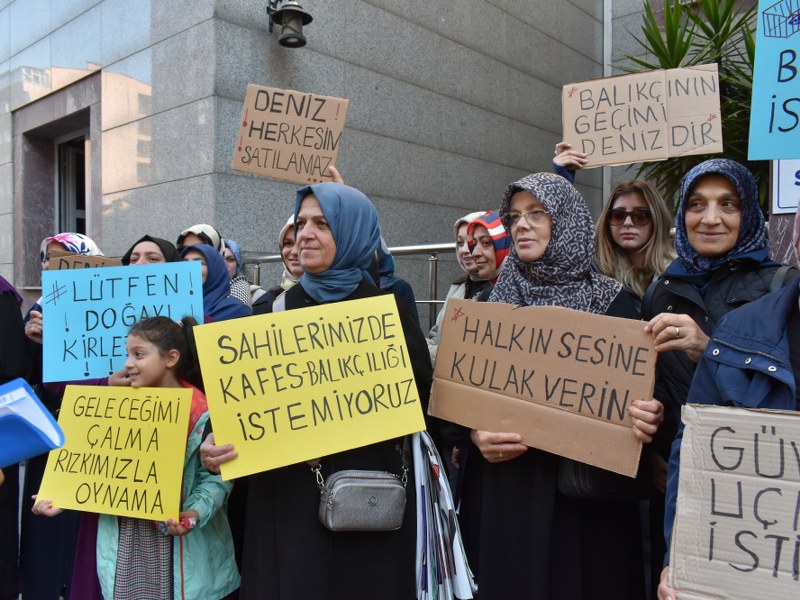 DENİZ
HERKESİN
SATILAMAZ
BALIKÇININ
GEÇİMİ
DENİZDİR
#LÜTFEN!
DOĞAYI
SAHİLERİMİZDE
KAFES-BALIKÇILIĞI
İSTEMİYORUZ
HALKIN SESİNE
KULAK VERİN
GELECEĞİMİ
ÇALMA
RIZKIMIZLA
OYNAMA